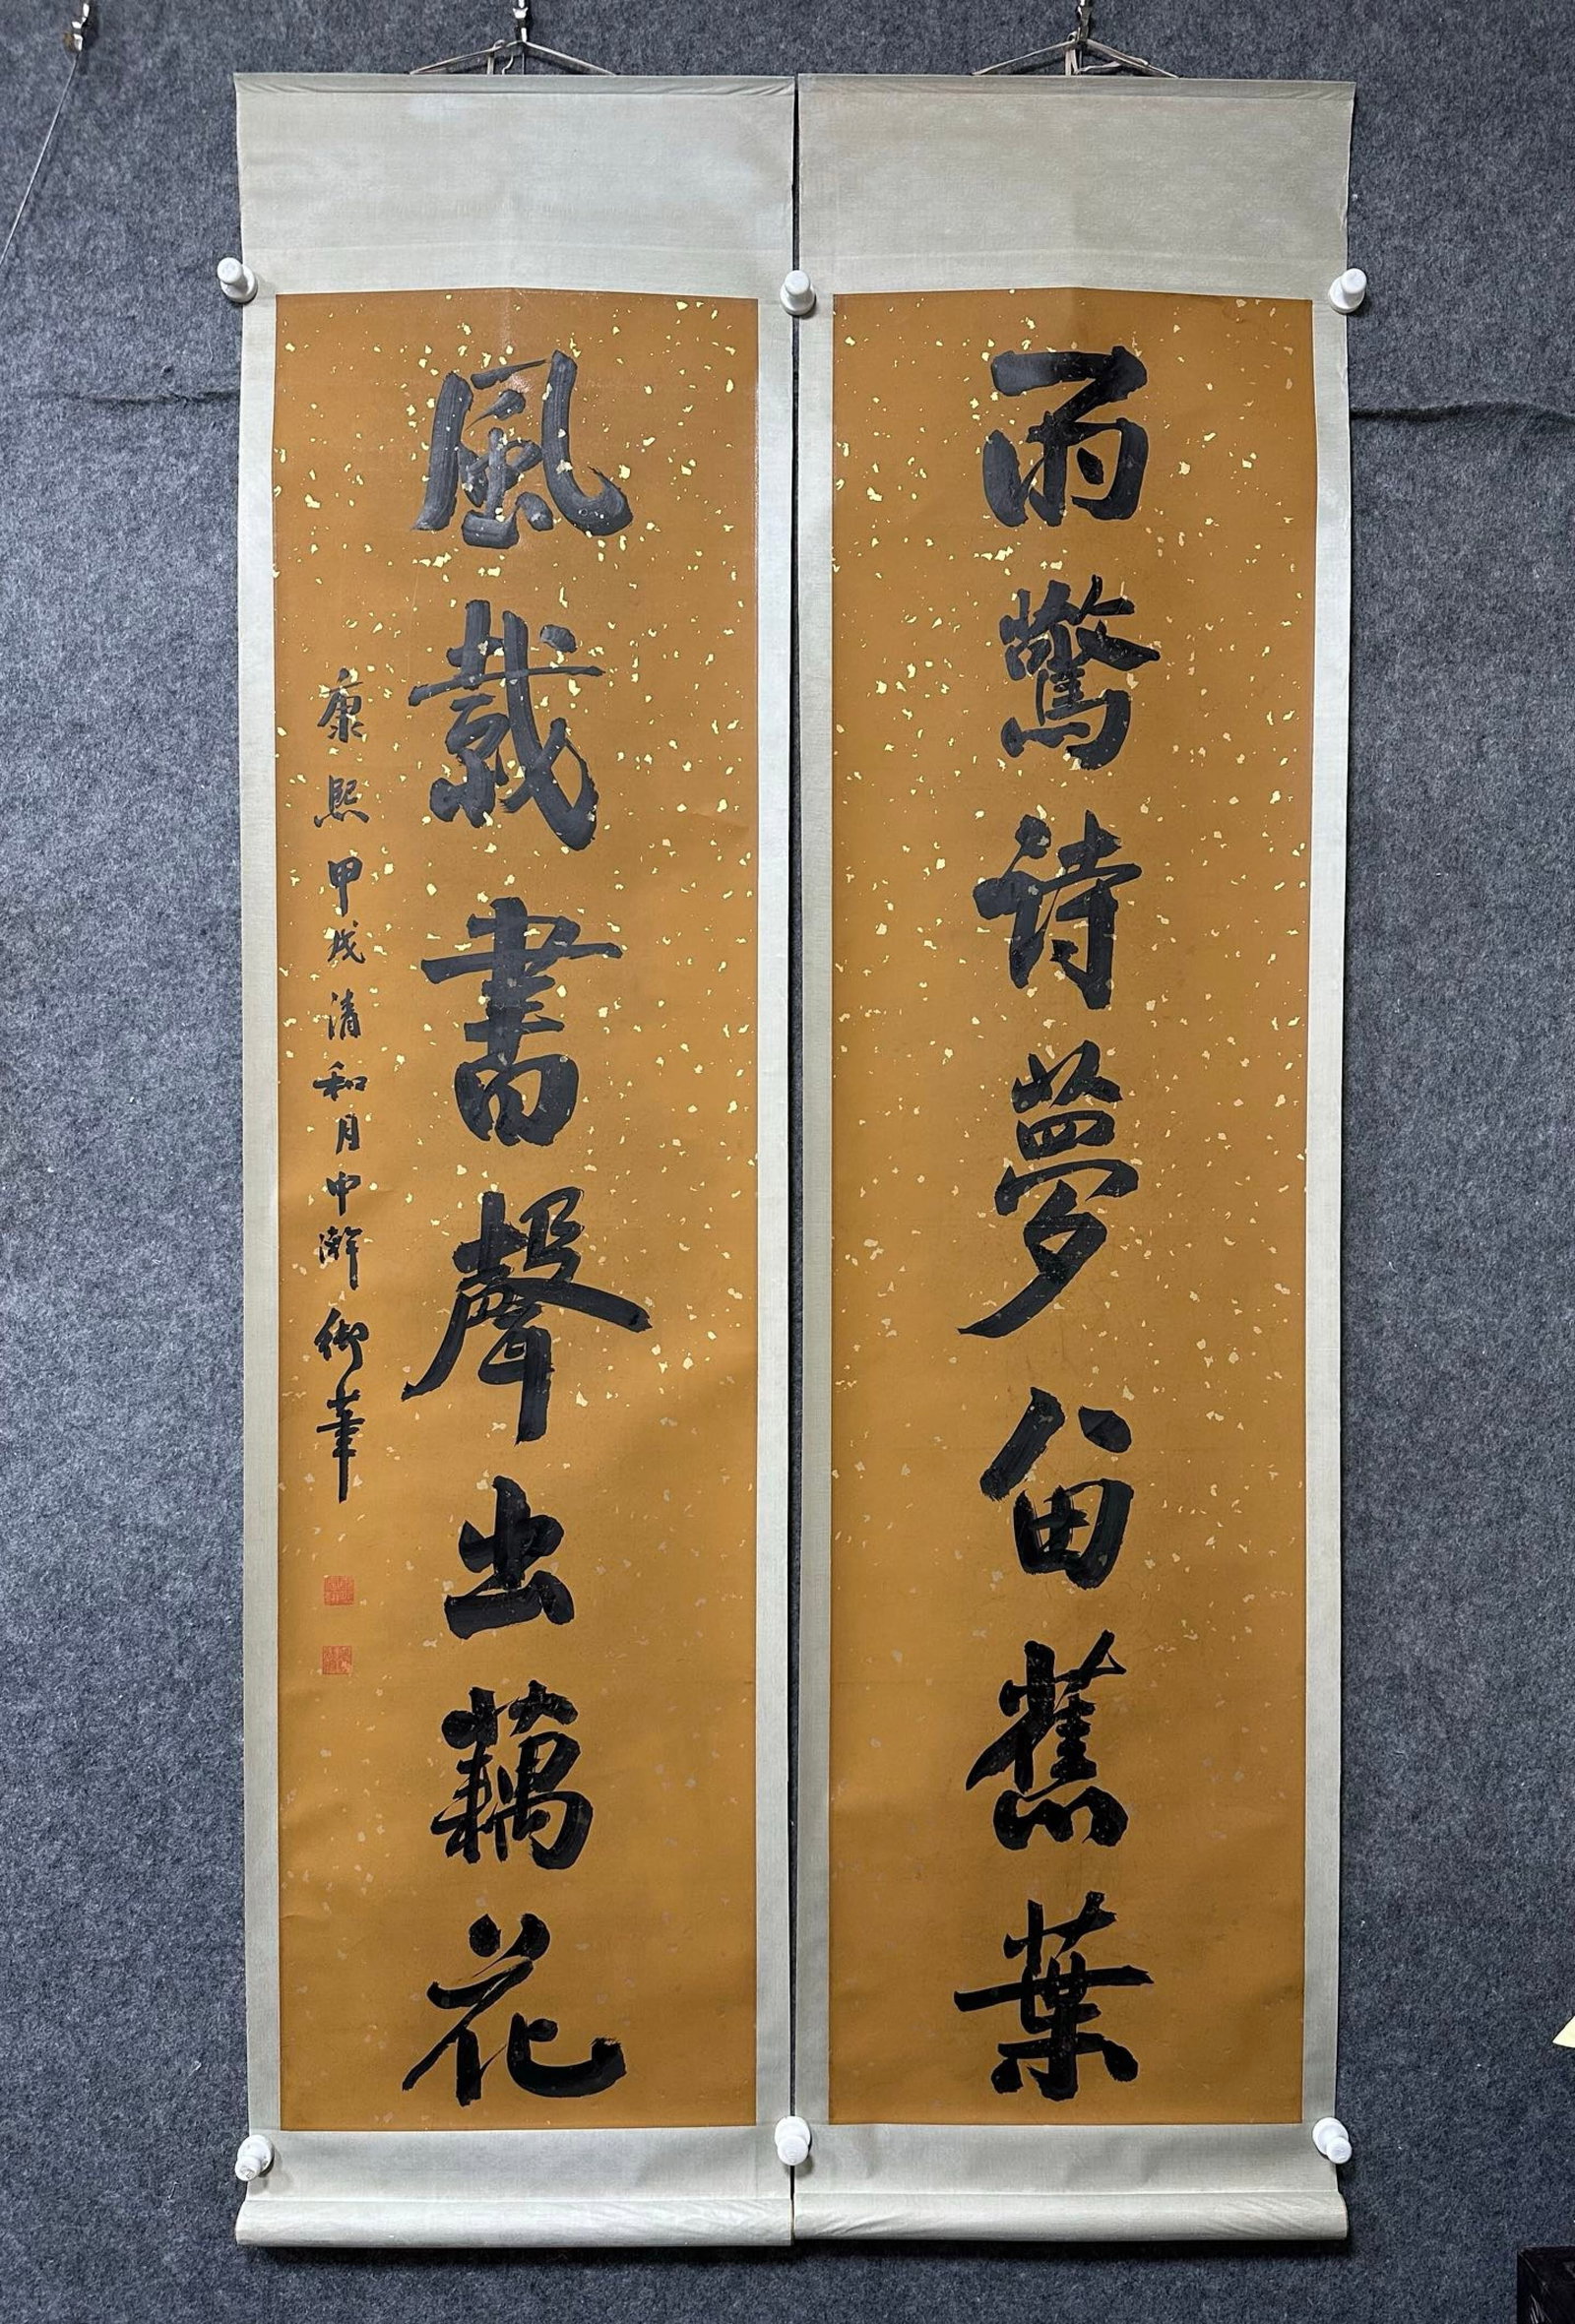 雨驚詩夢留蕉葉
風載書聲出藕花
康熙甲戌清和月中澣御筆